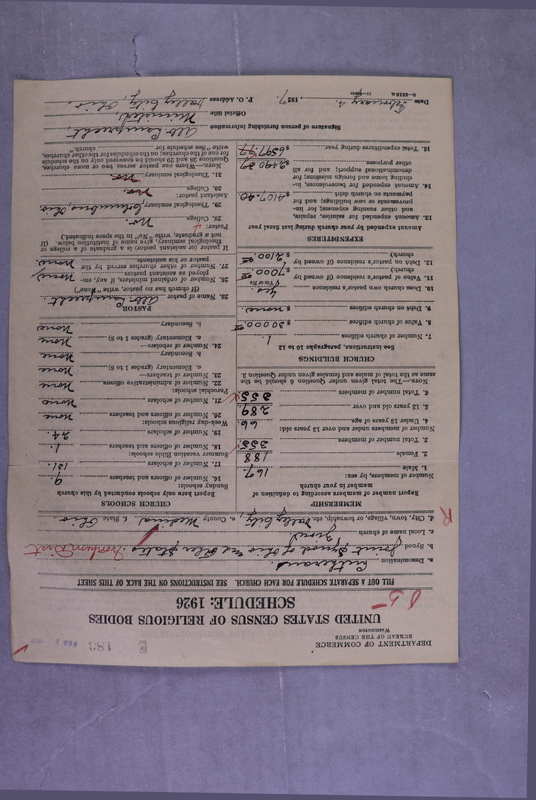 DEPARTMENT OF COMMERCE
BUREAU OF THE CENSUS
WASHINGTON
183
FEB 7
UNITED STATES CENSUS OF RELIGIOUS BODIES
SCHEDULE: 1926
FILL OUT A SEPARATE SCHEDULE FOR EACH CHURCH. SEE INSTRUCTIONS ON THE BACK OF THIS SHEET
a. Denomination Lutheran
b. Synod Joint Synod of Ohio and other states
c. Local name of church Zions
d. City, town, village, or township, etc. Valley City, e. County Medina f. State Ohio
MEMBERSHIP
Report number members according to definition of member in your church
Number of members, by sex:
1. Male 167
2. Female 188
3. Total number of members 355
Number of members under and over 13 years old:
4. Under 13 years of age 66
5. 13 years old and over 289
6. Total number of members 355
NOTE.—The total given under Question 6 should be the same as the total of males and females given under Question 3.
CHURCH BUILDINGS
See instructions, paragraphs 10 to 12
7. Number of church edifices 1
8. Value of church edifices $ 30000.00
9. Debt on church edifices $ none
10. Does church own pastor's residence yes
(Yes or No)
11. Value of pastor's residence (if owned by church) $ 7000.00
12. Debt on pastor's residence (if owned by church) $ 2100.00
EXPENDITURES
Amount expended by your church during last fiscal year
13. Amount expended for salaries, repairs, and other running expenses; for improvements or new buildings; and for payments on church debt $ 4107.40
14. Amount expended for benevolences, including home and foreign missions; for denominational support; and for all other purposes
15. Total expenditures during year
CHURCH SCHOOLS
Report here only schools conducted by this church
Sunday schools:
16. Number of officers and teachers 9
17. Number of scholars 151
Summer vacation Bible schools:
18. Number of officers and teachers 1
19. Number of scholars 24
Week-day religious schools:
20. Number of officers and teachers none
21. Number of scholars none
Parochial schools:
22. Number of administrative officers none
23. Number of teachers—
a. Elementary (grades 1 to 8) none
b. Secondary none
24. Number of scholars—
a. Elementary (grades 1 to 8) none
b. Secondary none
PASTOR
25. Name of pastor
(If church has no pastor, write "None")
26. Number of ordained ministers, if any, employed as assistant pastors none
27. Number of other churches served by the pastor or his assistants none
If pastor (or assistant pastor) is a graduate of a college or theological seminary, give name of institution below. (If not a graduate, write "No" in the space indicated.)
Pastor:
28. College No.
29. Theological seminary Columbus, Ohio
Assistant pastor:
30. College no.
31. Theological seminary no.
NOTE.—Where one pastor serves two or more churches, Questions 25 and 26 should be answered only on the schedule for one of the churches; on the schedule for the other churches, write "See schedule for church."
Signature of person furnishing information
Official title Minister
P. O. Address Valley City, Ohio.
Date February 4, 1927.